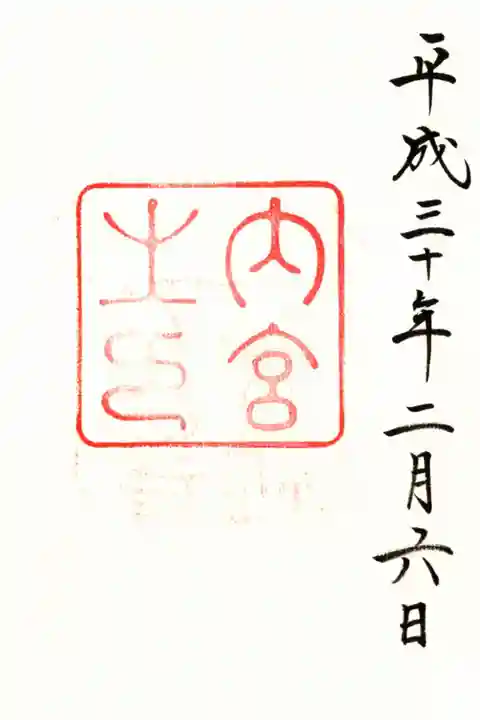 平成三十年二月六日
内宮
之印